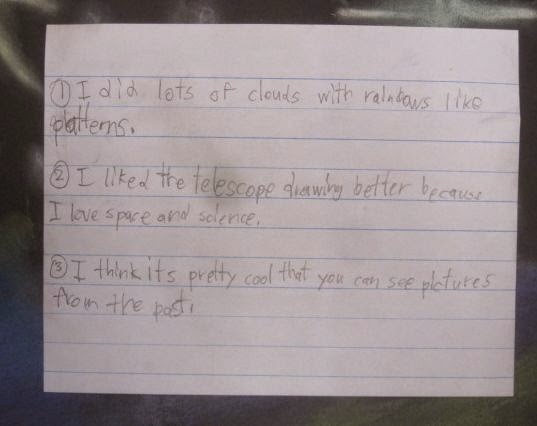 ① I did lots of clouds with rainbows like
platterns.
② I liked the telescope drawing better because
I love space and science.
③ I think its pretty cool that you can see pictures
from the past.